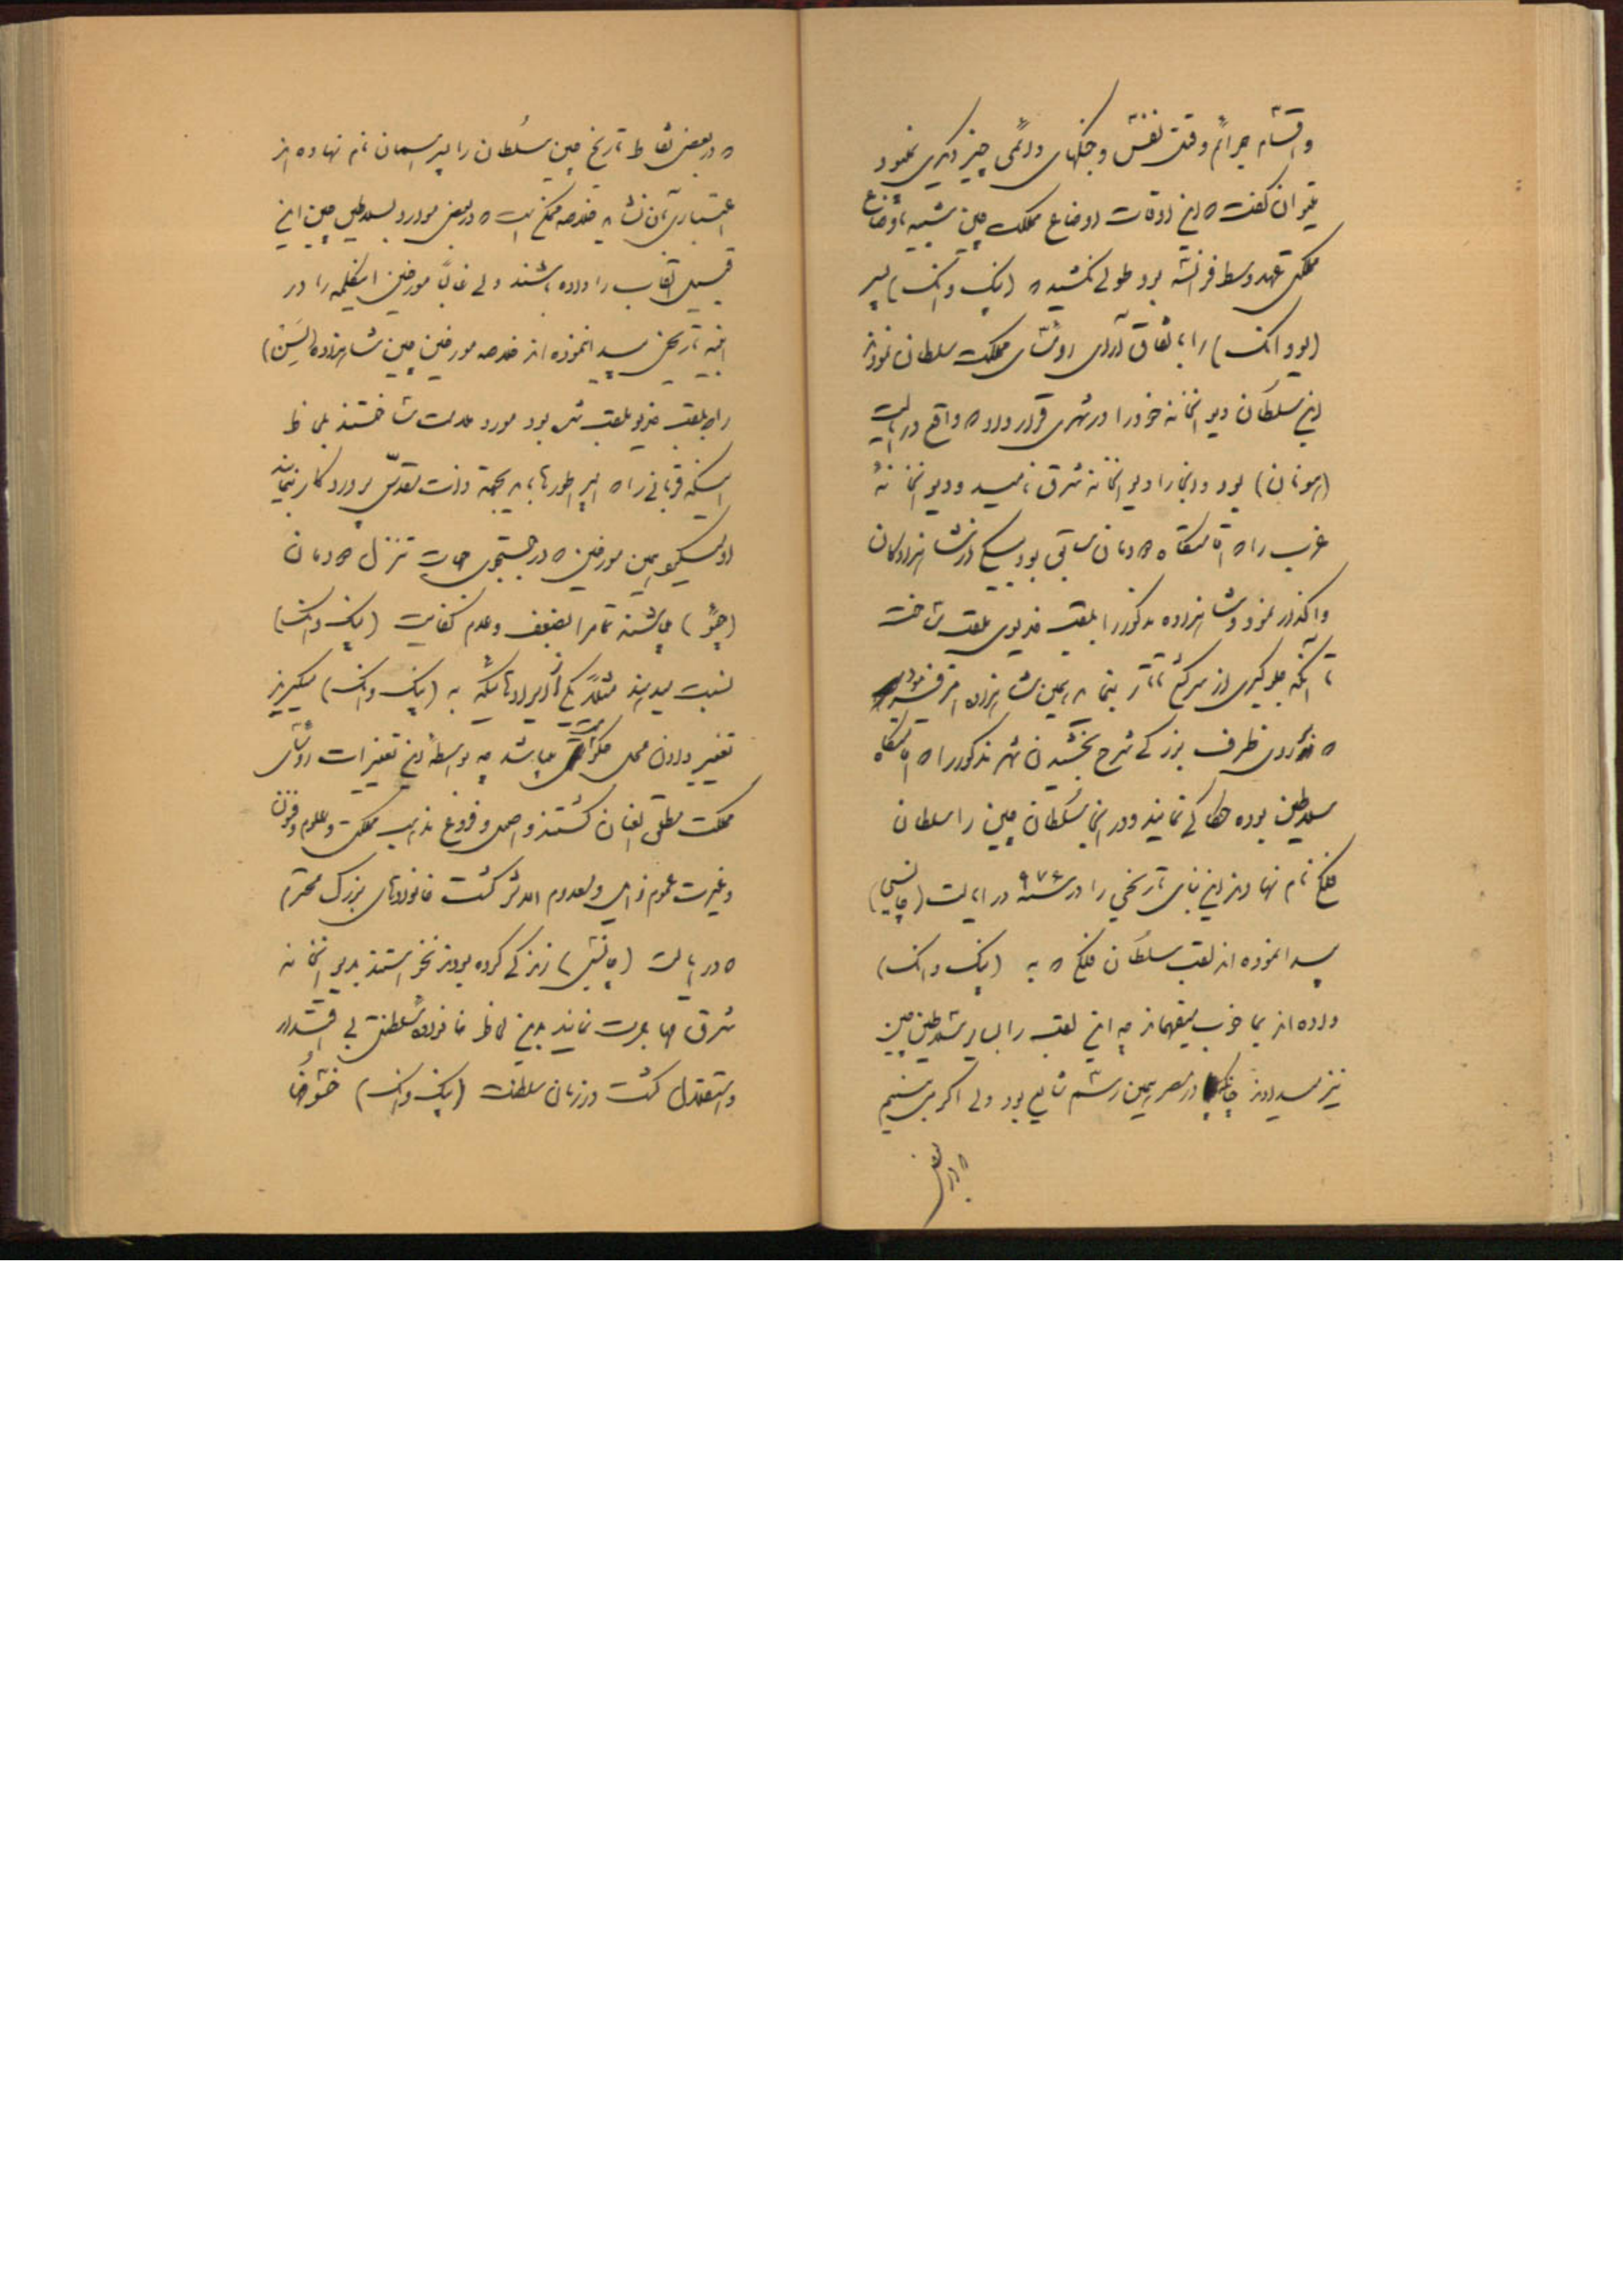 واقسام جرائم وقتل نفس و جنگهای دائمی چیز دیگری نمیبود
میتوان گفت که این اوقات اوضاع مملکت چین شبیه باوضاع
مملکتی عهد وسط فرانسه بود طولی نکشید که (پینگ وانگ) پسر
(یو وانگ) را باتفاق آرای رؤسای مملکت سلطان نمودند
این سلطان دیوانخانه خود را در شهری قرار داد که واقع در ایالت
(هونان) بود و اینجا را دیوانخانه شرق نامید و دیوانخانهٔ
غرب را که اقامتگاه دودمان سابق بود بیکی از شاهزادگان
واگذار نمود و شاهزاده مذکور را بلقب خدیوی ملقب ساخت
تا آنکه جلوگیری از سرکشی تاتار بنماید همین شاهزاده امر فرمود
که در روی ظرف بزرگی شرح بخشیدن شهر مذکور را که اقامتگاه
سلاطین بوده حکاکی نمایند و در اینجا سلطان چین را سلطان
فلک نام نهادند این بنای تاریخی را در سنه ۹۷۶ در ایالت (چانسی)
پیدا نموده اند لقب سلطان فلک که به (پینگ وانگ)
داده اند بما خوب میفهماند که این لقب را بسایر سلاطین چین
نیز میدادند چنانکه در مصر همین رسم شایع بود ولی اگر می بینیم
که در بعض
که در بعض نقاط تاریخ چین سلطان را پسر آسمان نام نهاده اند
اعتباری بآن نشاید خلاصه ممکن است که در بعض موارد بسلاطین چین این
قبیل القاب را داده باشند ولی غالباً مورخین این کلمه را در
ابنیه تاریخی پیدا نموده اند خلاصه مورخین چین شاهزاده (لسین)
را که بلقب خدیو ملقب شده بود مورد ملامت ساختند بملاحظه
اینکه قربانی را که امپراطورها باید بجهة ذات مقدس پروردگار بنمایند
او میکند همین مورخین که در جستجوی جهات تنزل دودمان
(چو) میباشند تماماً بضعف و عدم کفایت (پینگ وانگ)
نسبت میدهند مثلاً یکی از ایراداتیکه به (پینگ وانگ) میگیرند
تغییر دادن محل حکومت میباشد چه بواسطه این تغییرات رؤسای
مملکت مطلق العنان گشتند و اصول و فروع مذهب مملکت و علوم و فنون
و غیرت عموم زایل و معدوم الاثر گشت خانواده‌های بزرگ محترم
که در ایالت (چانسی) زندگی کرده بودند نخواستند بدیوانخانه
شرق مهاجرت نمایند بدین لحاظ خانواده سلطنتی بی اقتدار
و استقلال گشت در زمان سلطنت (پینگ وانگ) خشونت